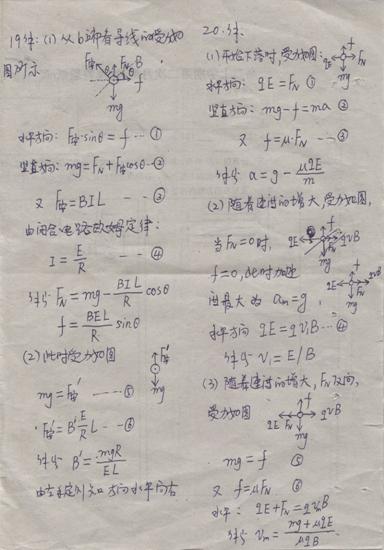 19解: (1) 从b端看导线的受力如
图所示
F安 FN B
θ θ f
mg
水平方向: F安·sinθ = f ··· ①
竖直方向: mg = FN + F安cosθ ··· ②
又 F安 = BIL ··· ③
由闭合电路欧姆定律:
I = E/R ··· ④
解得 FN = mg - BIL/R cosθ
f = BEL/R sinθ
(2) 此时受力如图
F安'
mg
mg = F安' ··· ⑤
F安' = B' E/R L ··· ⑥
解得 B' = mgR/EL
由左手定则知 方向水平向右
20.解.
(1) 开始下落时,受力如图:
f
qE FN
mg
水平方向: qE = FN ①
竖直方向: mg - f = ma ②
又 f = μ·FN ··· ③
解得 a = g - μqE/m
(2) 随着速度的增大,受力如图,
当FN=0时,
qE f qvB
mg
f=0,此时加速
度最大为 am = g,
水平方向 qE = qv₁B ··· ④
解得 v₁ = E/B
(3) 随着速度的增大,FN反向,
受力如图
f
qE FN qvB
mg
mg = f ⑤
又 f = μFN ⑥
水平: qE + FN = qvmB
解得 vm = mg + μqE/μqB